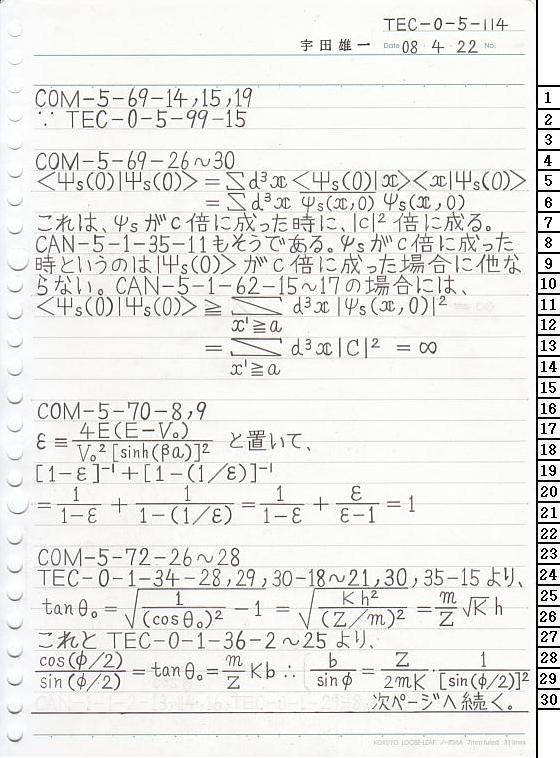 TEC-0-5-114
宇田雄一 Date 08・4・22 No.
COM-5-69-14,15,19
∵ TEC-0-5-99-15
COM-5-69-26～30
<Ψs(0)|Ψs(0)> = ∑d³x <Ψs(0)|x><x|Ψs(0)>
= ∑d³x ψs(x,0) ψs(x,0)
これは、ψsがc倍に成った時に、|c|²倍に成る。
CAN-5-1-35-11もそうである。ψsがc倍に成った
時というのは|Ψs(0)>がc倍に成った場合に他な
らない。CAN-5-1-62-15～17の場合には、
<Ψs(0)|Ψs(0)> ≧ ∑ d³x|ψs(x,0)|²
x¹≧a
= ∑ d³x|C|² = ∞
x¹≧a
COM-5-70-8,9
ε ≡ 4E(E-V₀) / V₀²[sinh(βa)]² と置いて、
[1-ε]⁻¹+[1-(1/ε)]⁻¹
= 1/(1-ε) + 1/(1-(1/ε)) = 1/(1-ε) + ε/(ε-1) = 1
COM-5-72-26～28
TEC-0-1-34-28,29,30-18～21,30,35-15より、
tanθ₀ = √(1/(cosθ₀)² - 1) = √(Kh²/(Z/m)²) = m/Z √K h
これと TEC-0-1-36-2～25より、
cos(φ/2)/sin(φ/2) = tanθ₀ = m/Z Kb ∴ b/sinφ = Z/2mK · 1/[sin(φ/2)]²
次ページへ続く。
KOKUYO LOOSE-LEAF ノ-836A 7mm ruled 31 lines
1
2
3
4
5
6
7
8
9
10
11
12
13
14
15
16
17
18
19
20
21
22
23
24
25
26
27
28
29
30